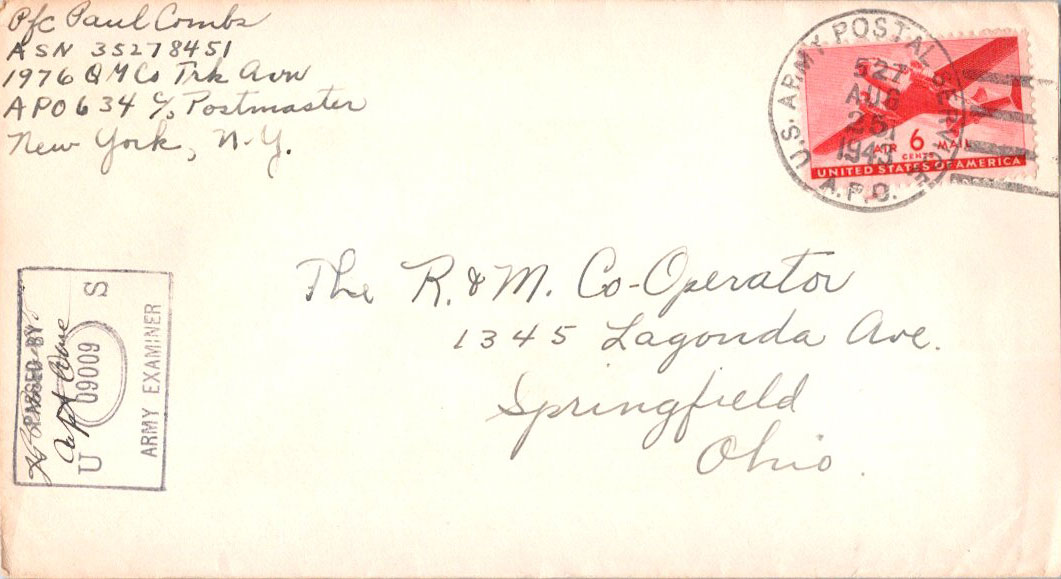 Pfc Paul Combs
ASN 35278451
1976 QM Co Trk Avn
APO 634 c/o Postmaster
New York, N.Y.
U.S. ARMY POSTAL SERVICE
527
AUG
25
1943
A.P.O.
AIR 6 MAIL
CENTS
UNITED STATES OF AMERICA
The R. & M. Co-Operator
1345 Lagonda Ave.
Springfield
Ohio.
PASSED BY
Capt
U S
09009
ARMY EXAMINER